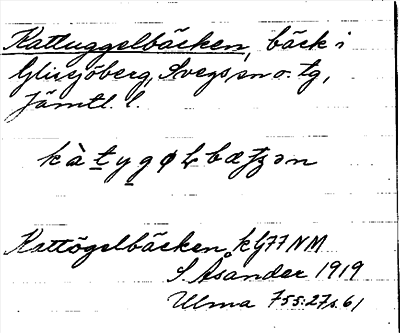 Kattuggelbäcken, bäck i
Glissjöberg, Svegs sn o. tg,
Jämtl. l.
Kattögelbäcken kg77NM
S. Åsander 1919
Ulma 755:27 s. 61